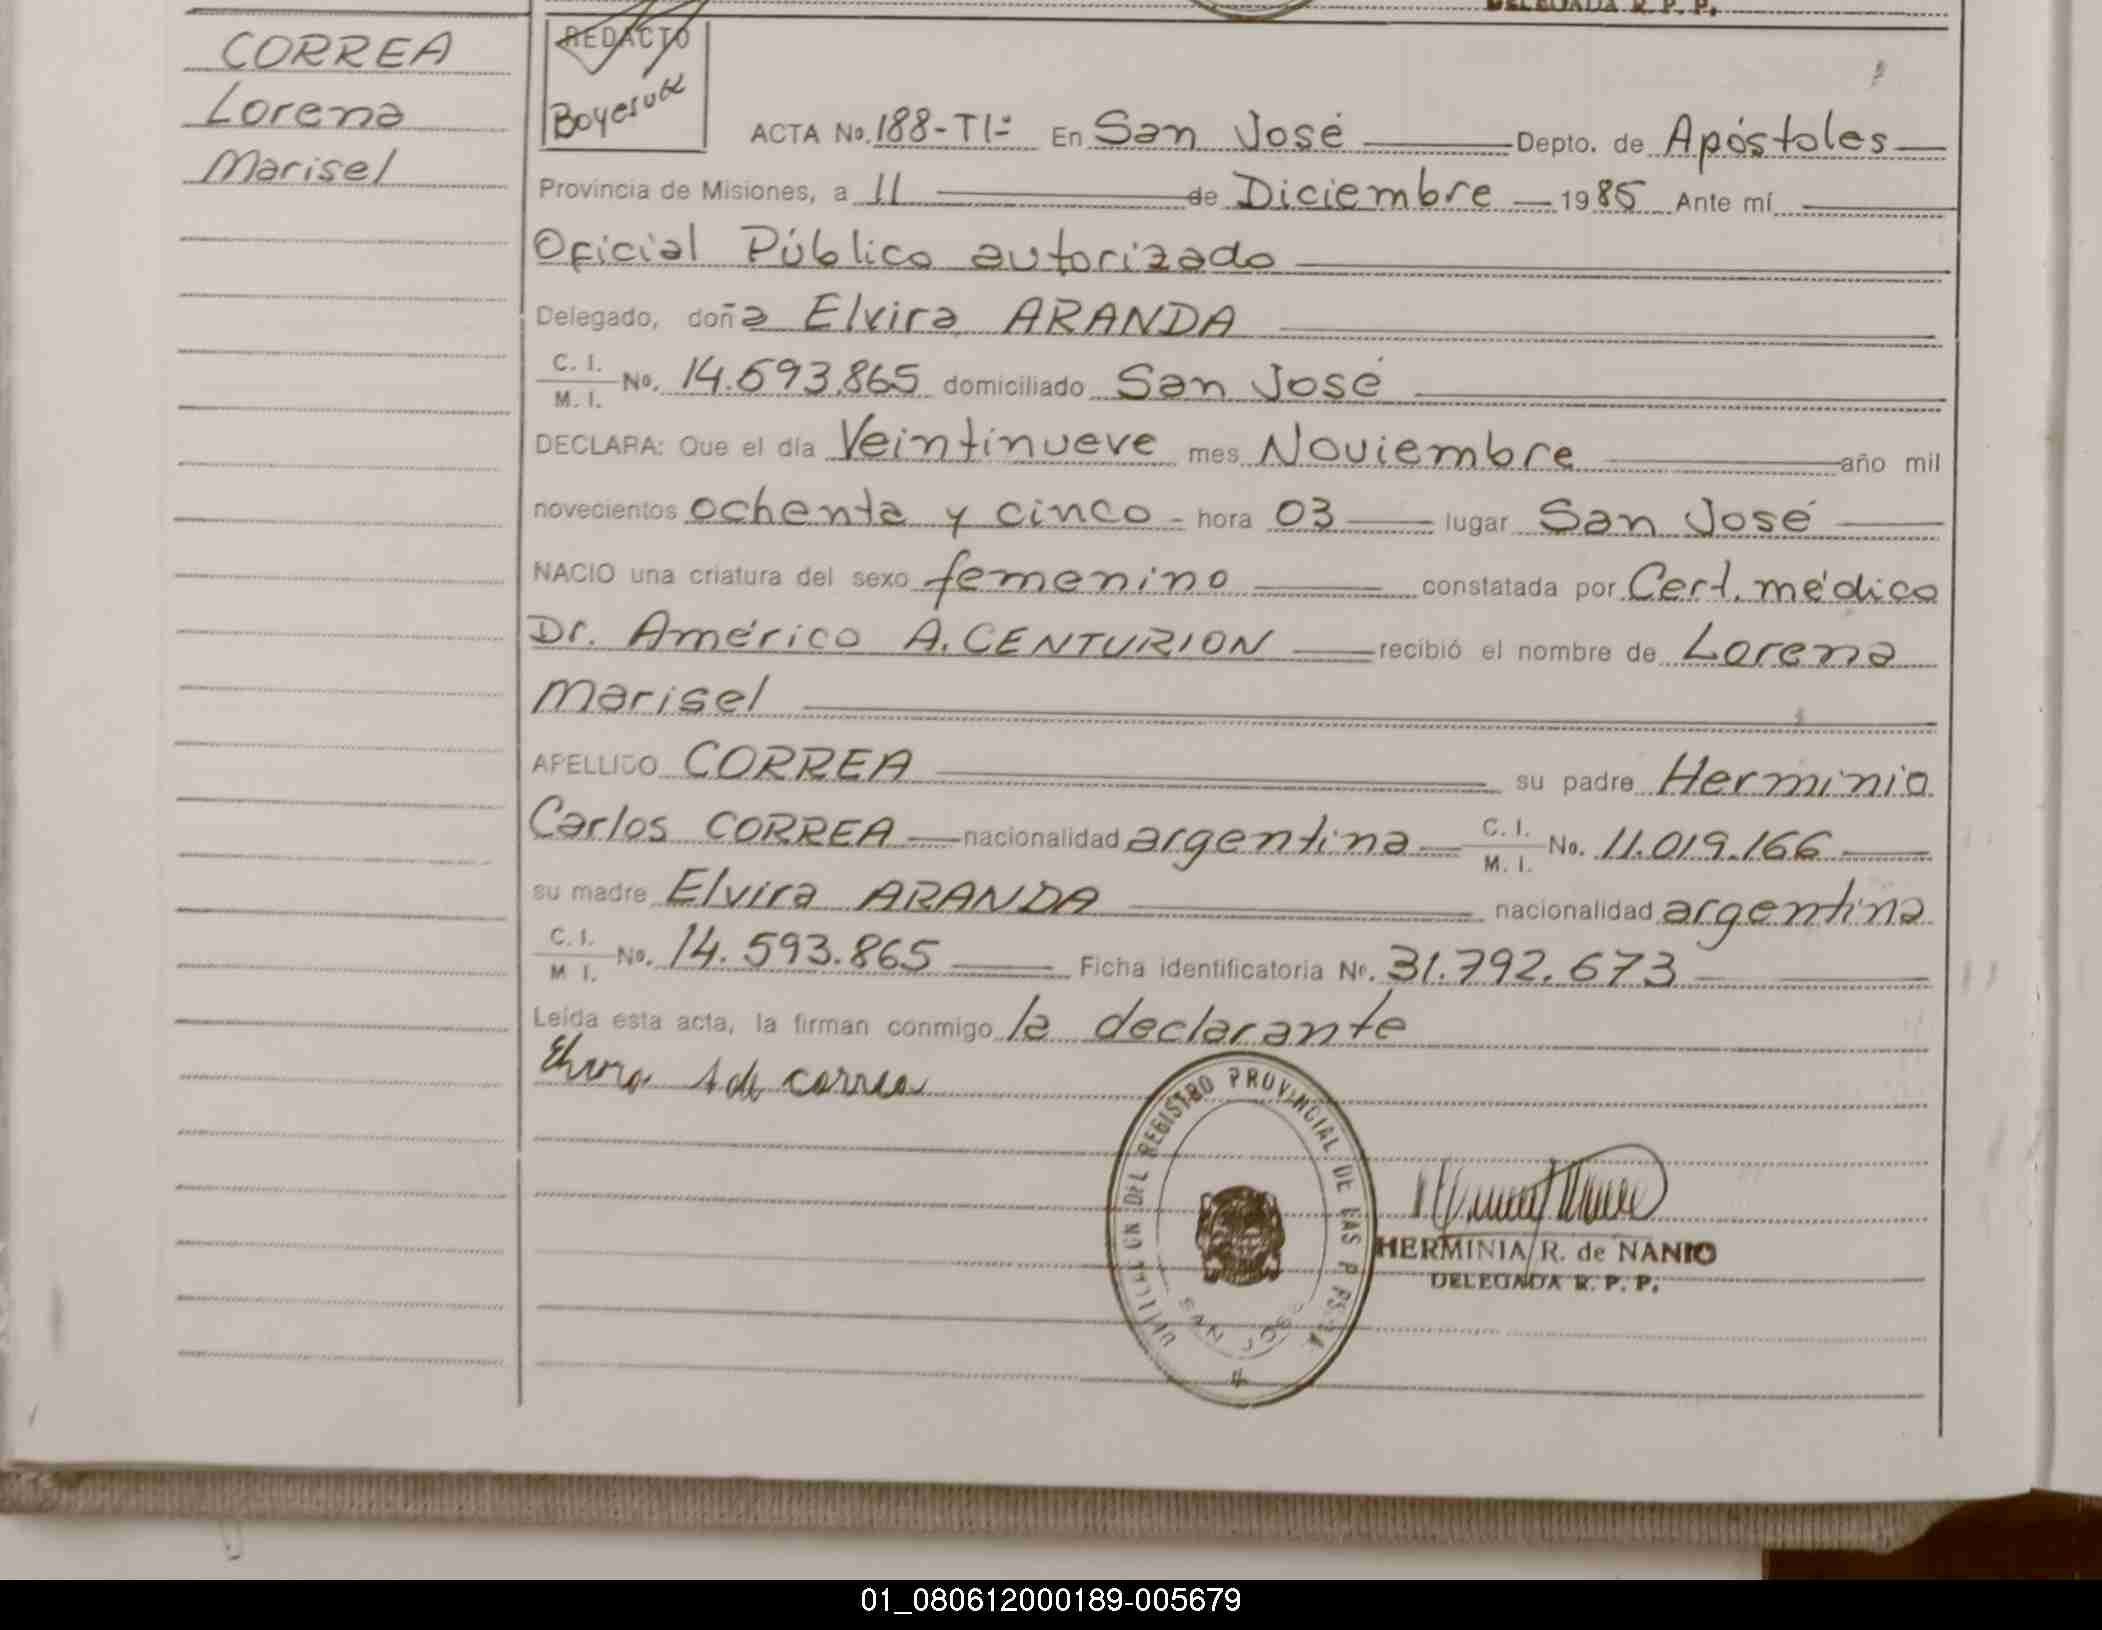 DELEGADA R. P. P.
CORREA
Lorena
Marisel
REDACTO
ACTA No. 188-TI- En San José Depto. de Apóstoles
Provincia de Misiones, a 11 de Diciembre 1985 Ante mí
Oficial Público autorizado
Delegado, doña Elvira ARANDA
C. I.
M. I. No. 14.593.865 domiciliado San José
DECLARA: Que el día Veintinueve mes Noviembre año mil
novecientos ochenta y cinco - hora 03 lugar San José
NACIO una criatura del sexo femenino constatada por Cert. médico
Dr. Américo A. CENTURION recibió el nombre de Lorena
Marisel
APELLIDO CORREA su padre Herminio
Carlos CORREA nacionalidad argentina C. I. M. I. No. 11.019.166
su madre Elvira ARANDA nacionalidad argentina
C. I.
M I. No. 14.593.865 Ficha identificatoria Nº. 31.792.673
Leída esta acta, la firman conmigo la declarante
Elvira A de correa
DEL REGISTRO PROVINCIAL DE LAS
SAN JOSE
HERMINIA R. de NANIO
DELEGADA R. P. P.
01_080612000189-005679